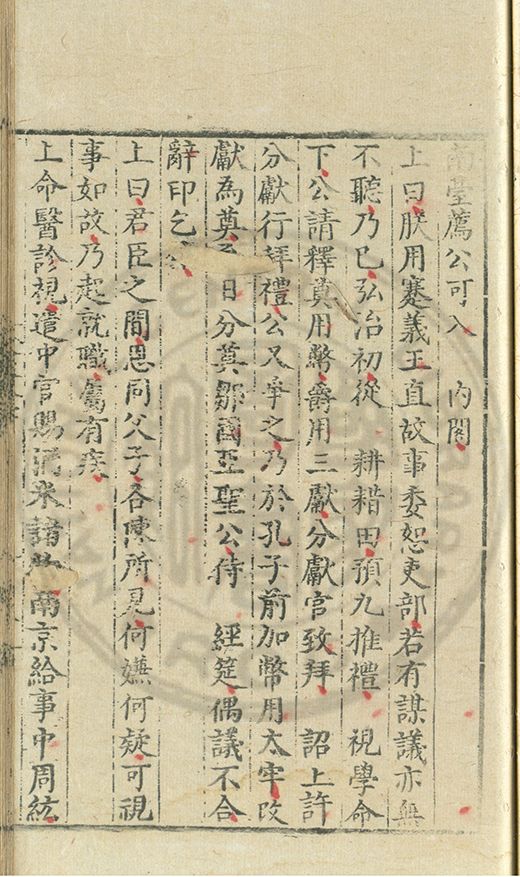 南臺薦公可入　內閣
上曰朕用蹇義王直故事委恕吏部若有謀議亦無
不聽乃已弘治初從　耕耤田預九推禮　視學命
下公請釋奠用幣爵用三獻分獻官致拜　詔上許
分獻行拜禮公又爭之乃於孔子前加幣用太牢改
獻為奠　日分奠鄒國亞聖公侍　經筵偶議不合
辭印乞
上曰君臣之間恩同父子各陳所見何嫌何疑可視
事如故乃起就職屬有疾
上命醫診視遣中官賜酒米諸　南京給事中周紘